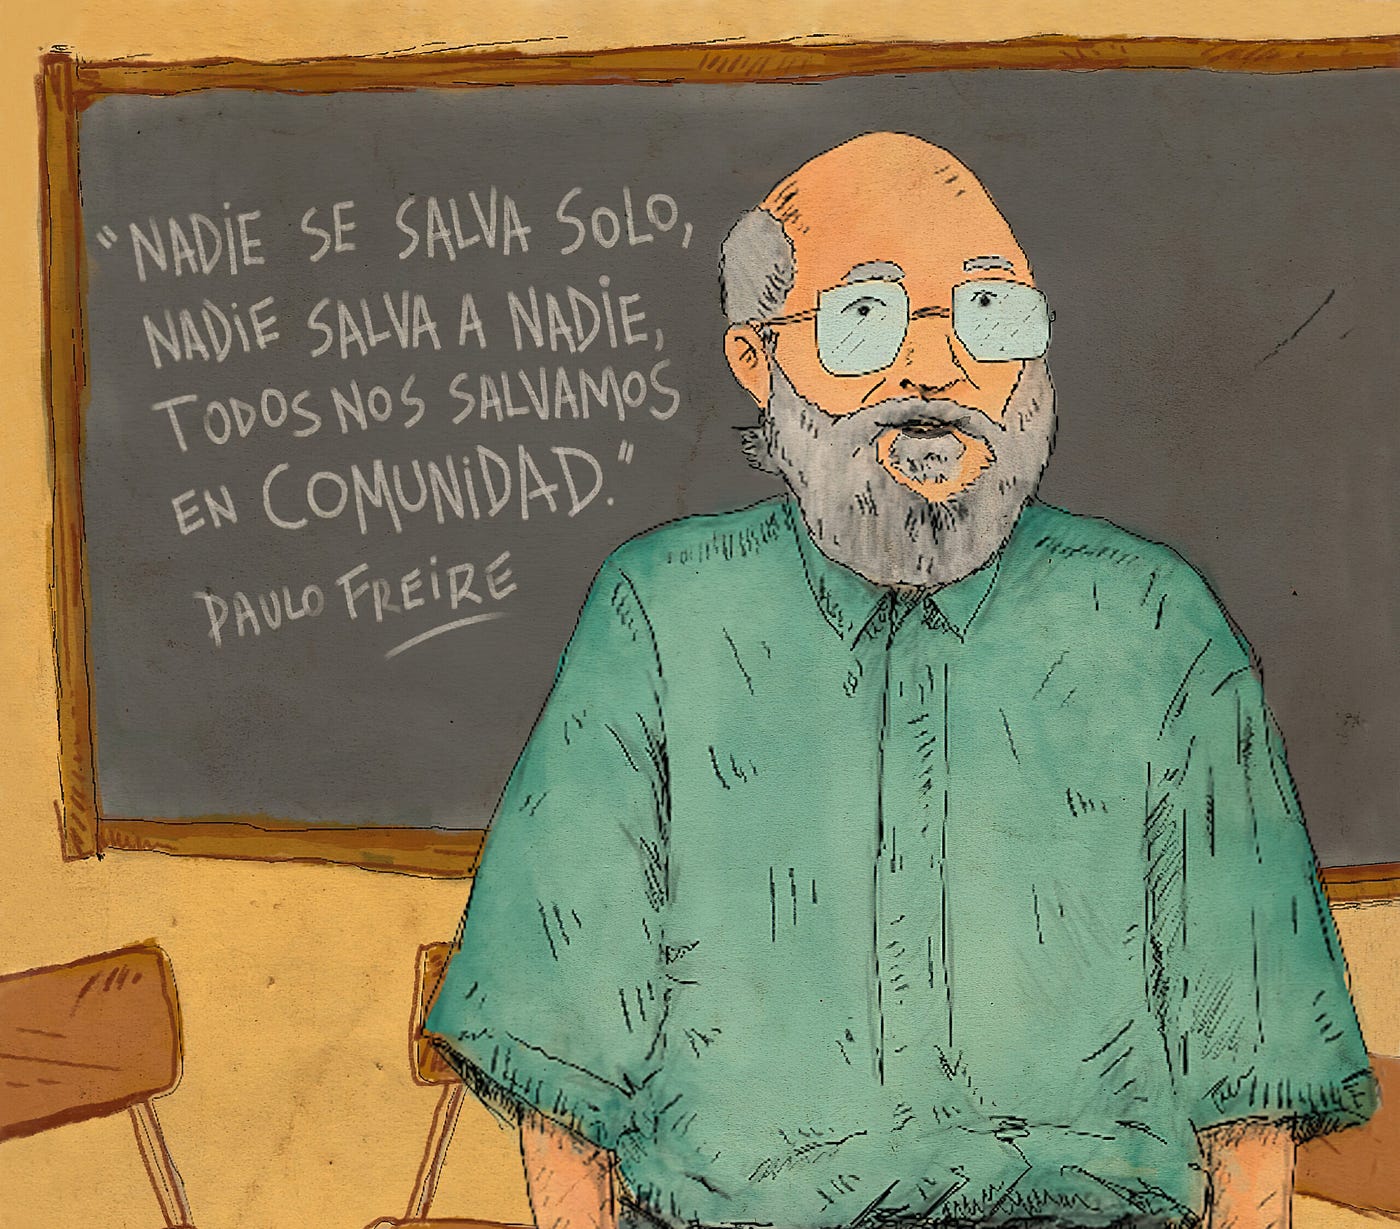 "NADiE SE SALVA SOLO,
NADiE SALVA A NADiE,
TODOS NOS SALVAMOS
EN COMUNiDAD."
PAULO FREiRE